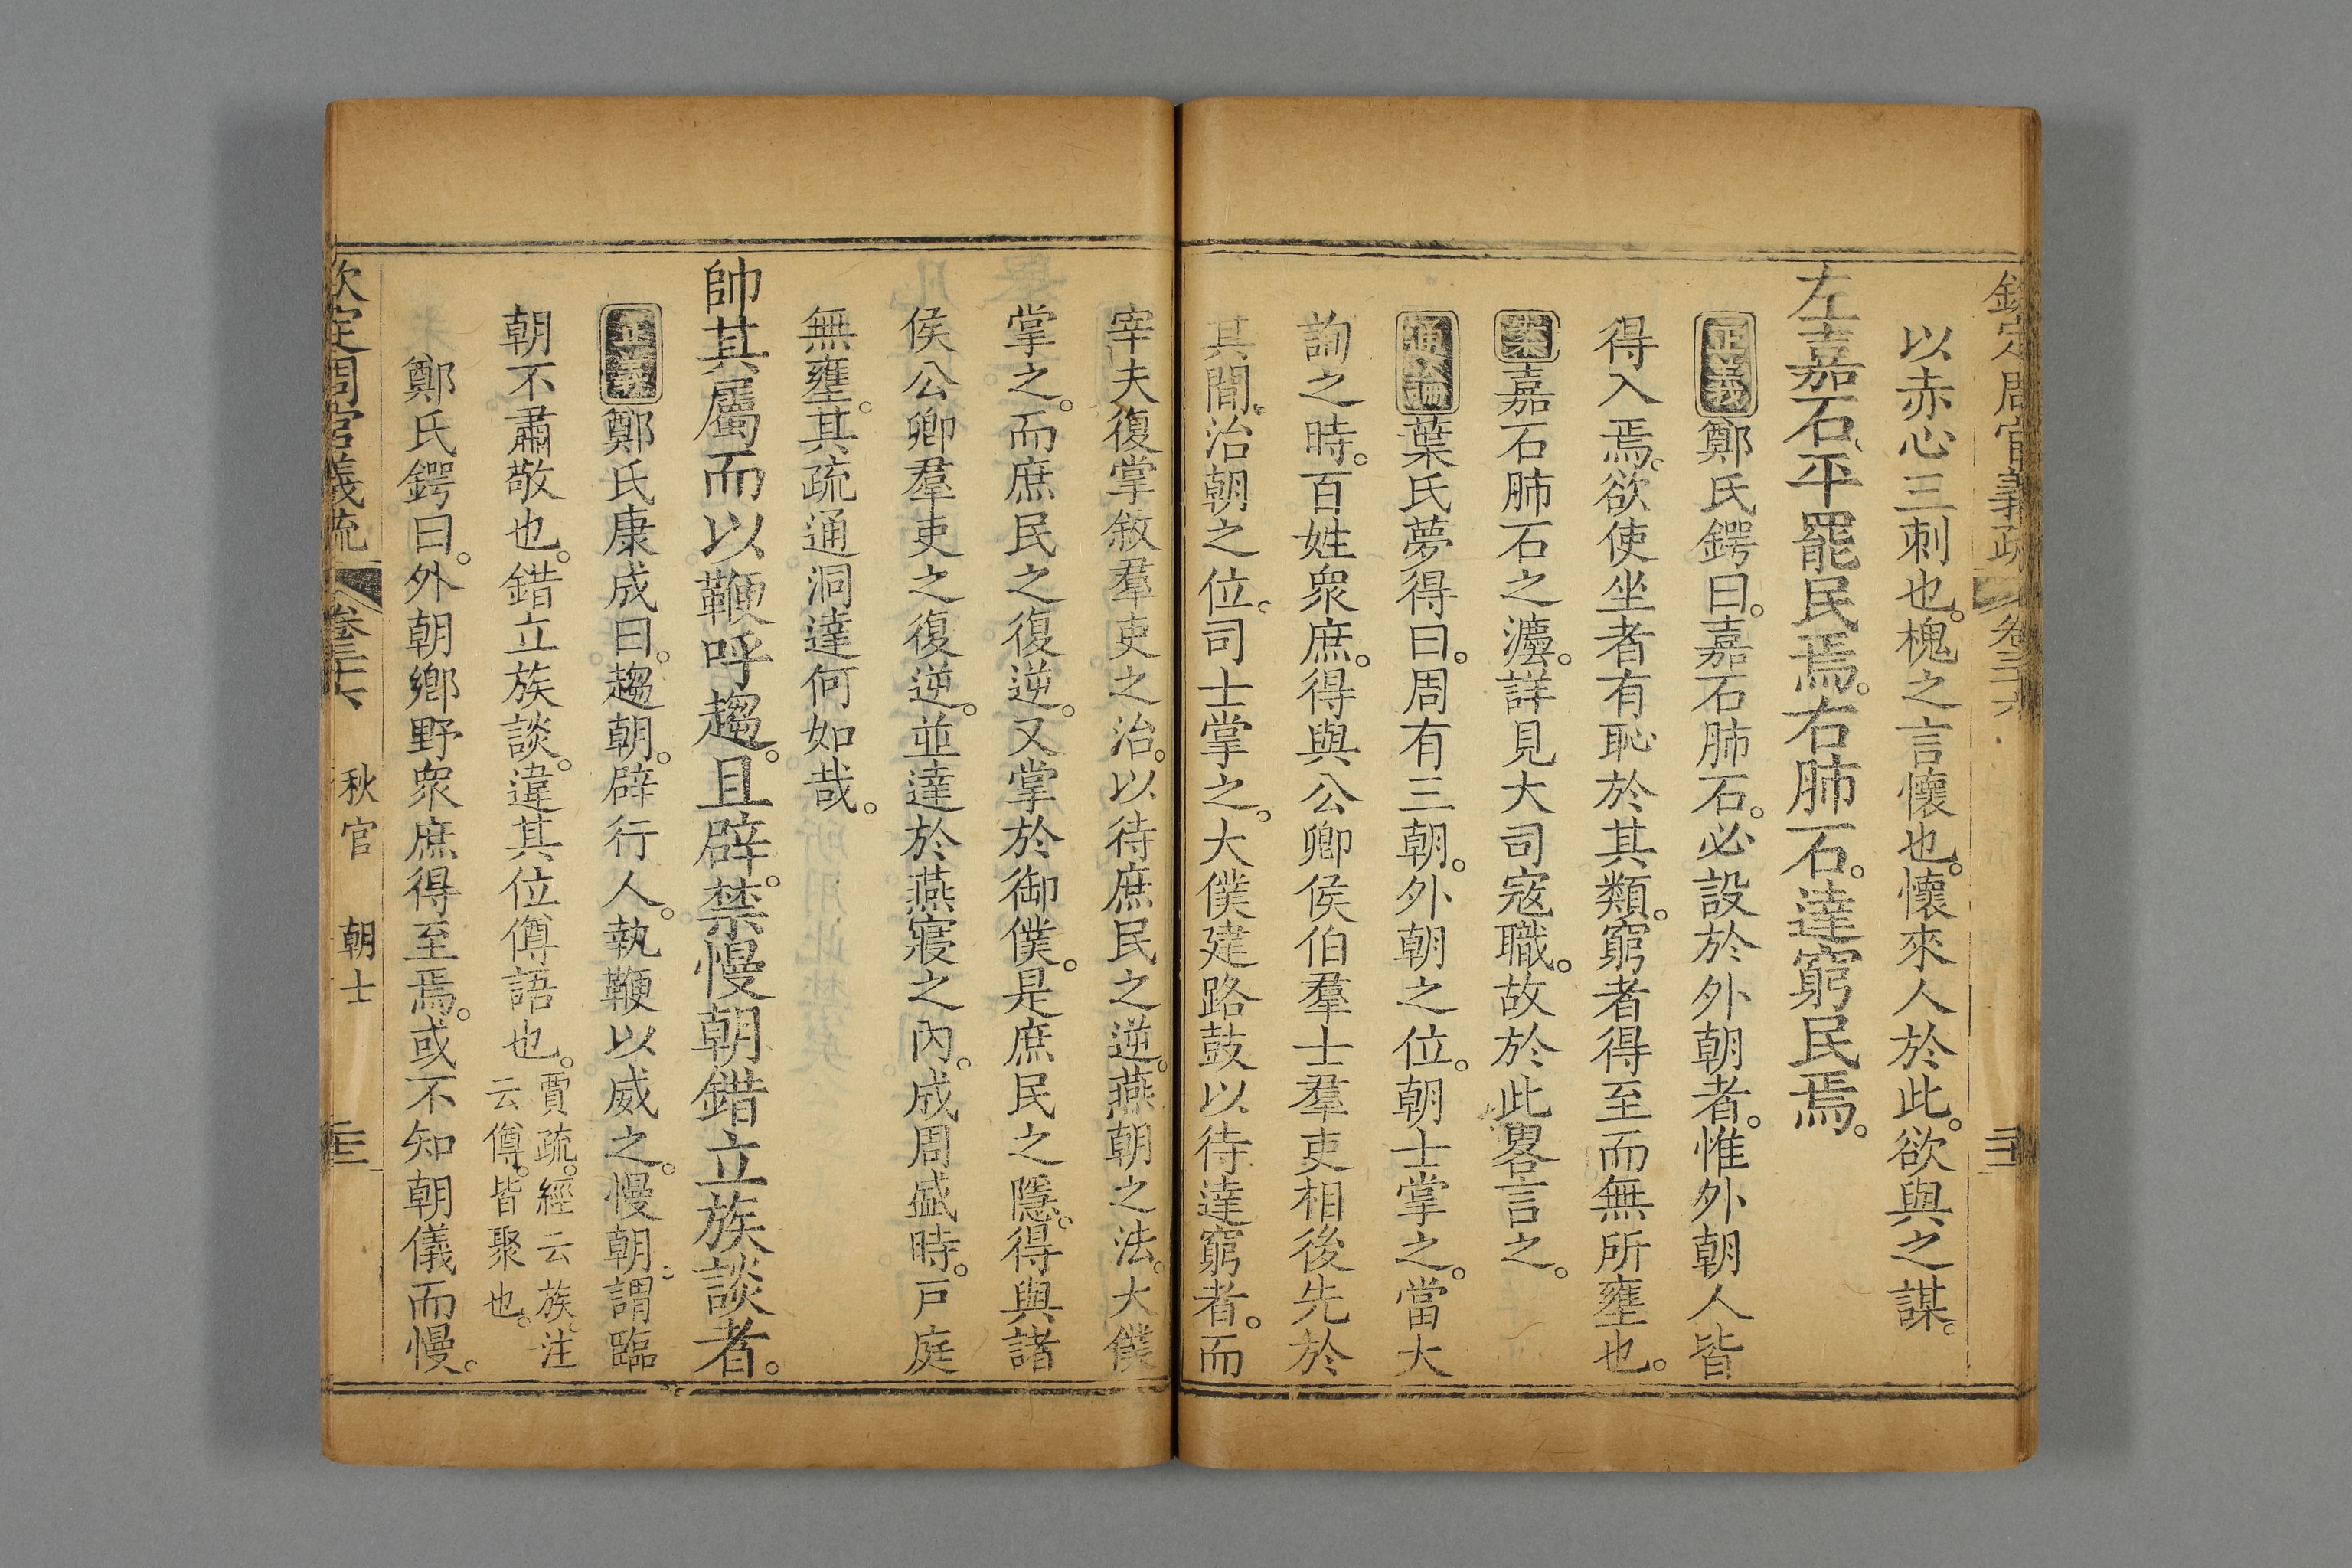 欽定周官義疏 卷三十六
以赤心三刺也。槐之言懷也。懷來人於此。欲與之謀。
左嘉石。平罷民焉。右肺石。達窮民焉。
正義鄭氏鍔曰。嘉石肺石。必設於外朝者。惟外朝人皆
得入焉。欲使坐者有恥於其類。窮者得至而無所壅也。
案嘉石肺石之灋。詳見大司寇職。故於此畧言之。
通論葉氏夢得曰。周有三朝。外朝之位。朝士掌之。當大
詢之時。百姓衆庶。得與公卿侯伯羣士羣吏相後先於
其間。治朝之位。司士掌之。大僕建路鼓以待達窮者。而
宰夫復掌敘羣吏之治。以待庶民之逆。燕朝之法。大僕
掌之。而庶民之復逆。又掌於御僕。是庶民之隱。得與諸
侯公卿羣吏之復逆。並達於燕寢之內。成周盛時。戸庭
無壅。其疏通洞達何如哉。
帥其屬而以鞭呼趨。且辟。禁慢朝錯立族談者。
正義鄭氏康成曰。趨朝。辟行人。執鞭以威之。慢朝。謂臨
朝不肅敬也。錯立族談。違其位僔語也。賈疏。經云族。注
云僔。皆聚也。
鄭氏鍔曰。外朝鄉野衆庶得至焉。或不知朝儀而慢。
欽定周官義疏 卷三十六 秋官 朝士